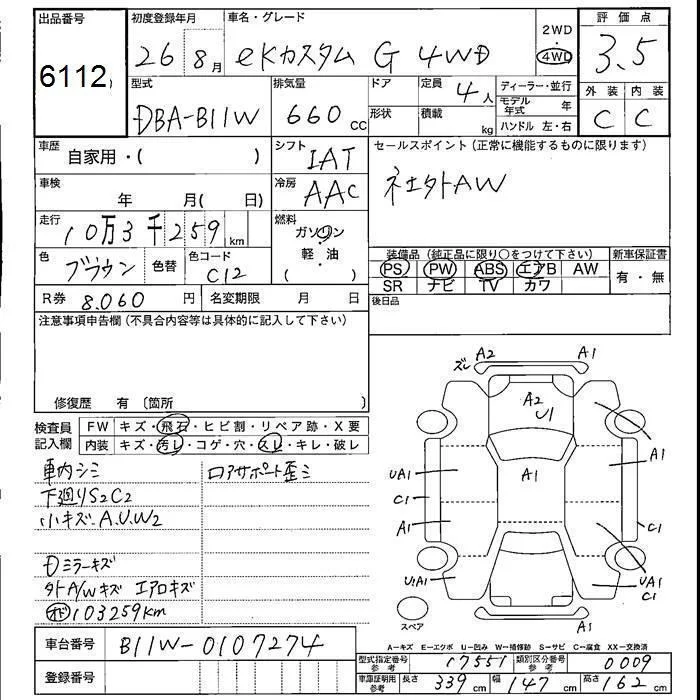 出品番号 初度登録年月 車名・グレード 2WD ・ 4WD 評価点
6112 26 8月 eKカスタム G 4WD 3.5
型式 排気量 ドア 定員 4人 ディーラー・並行 外装 内装
DBA-B11W 660cc 形状 積載 kg モデル年式 年 C C
ハンドル 左・右
車歴 自家用・( ) シフト IAT セールスポイント(正常に機能するものに限ります)
車検 年 月( 日) 冷房 AAC 社外AW
走行 10万3千259km 燃料 ガソリン・軽・油 ( )
色 ブラウン 色替 色コード C12 装備品(純正品に限り○をつけて下さい) 新車保証書
PS PW ABS エアB AW 有・無
SR ナビ TV カワ
R券 8,060円 名変期限 月 日 後日品
注意事項申告欄(不具合内容等は具体的に記入して下さい)
修復歴 有 〔箇所 〕
検査員記入欄 FW キズ・飛石・ヒビ割・リペア跡・X要
内装 キズ・汚レ・コゲ・穴・スレ・キレ・破レ
車内シミ ロアサポート歪ミ
下廻りS2C2
小キズ.A.U.W2
Dミラーキズ
外A/Wキズ エアロキズ
メ 103259km
ズレ A2 A1
A2 U1
A1
A1
UA1
C1
A1
C1
U1A1
UA1
C1
A1
スペア
車台番号 B11W-0107274
登録番号
A−キズ E−エクボ U−凹み W−補修跡 S−サビ C−腐食 XX−交換済
型式指定番号 参考 17551 類別区分番号 参考 0009
車庫証明用 参考 長さ 339cm 幅 147cm 高さ 162cm